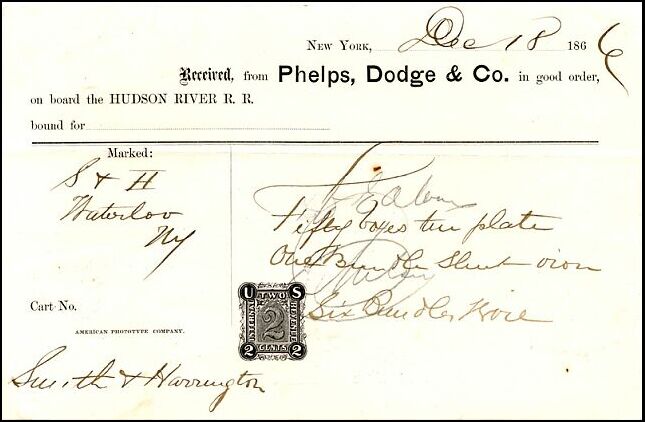 New York, Dec 18 1866
Received, from Phelps, Dodge & Co. in good order,
on board the HUDSON RIVER R. R.
bound for
Marked:
S & H
Waterloo
NY
Fifty boxes tin plate
One Bundle Sheet iron
Six Bundles Wire
Cart No.
AMERICAN PHOTOTYPE COMPANY.
U S
INTERNAL REVENUE
TWO
2
CENTS
2 2
Smith & Harrington